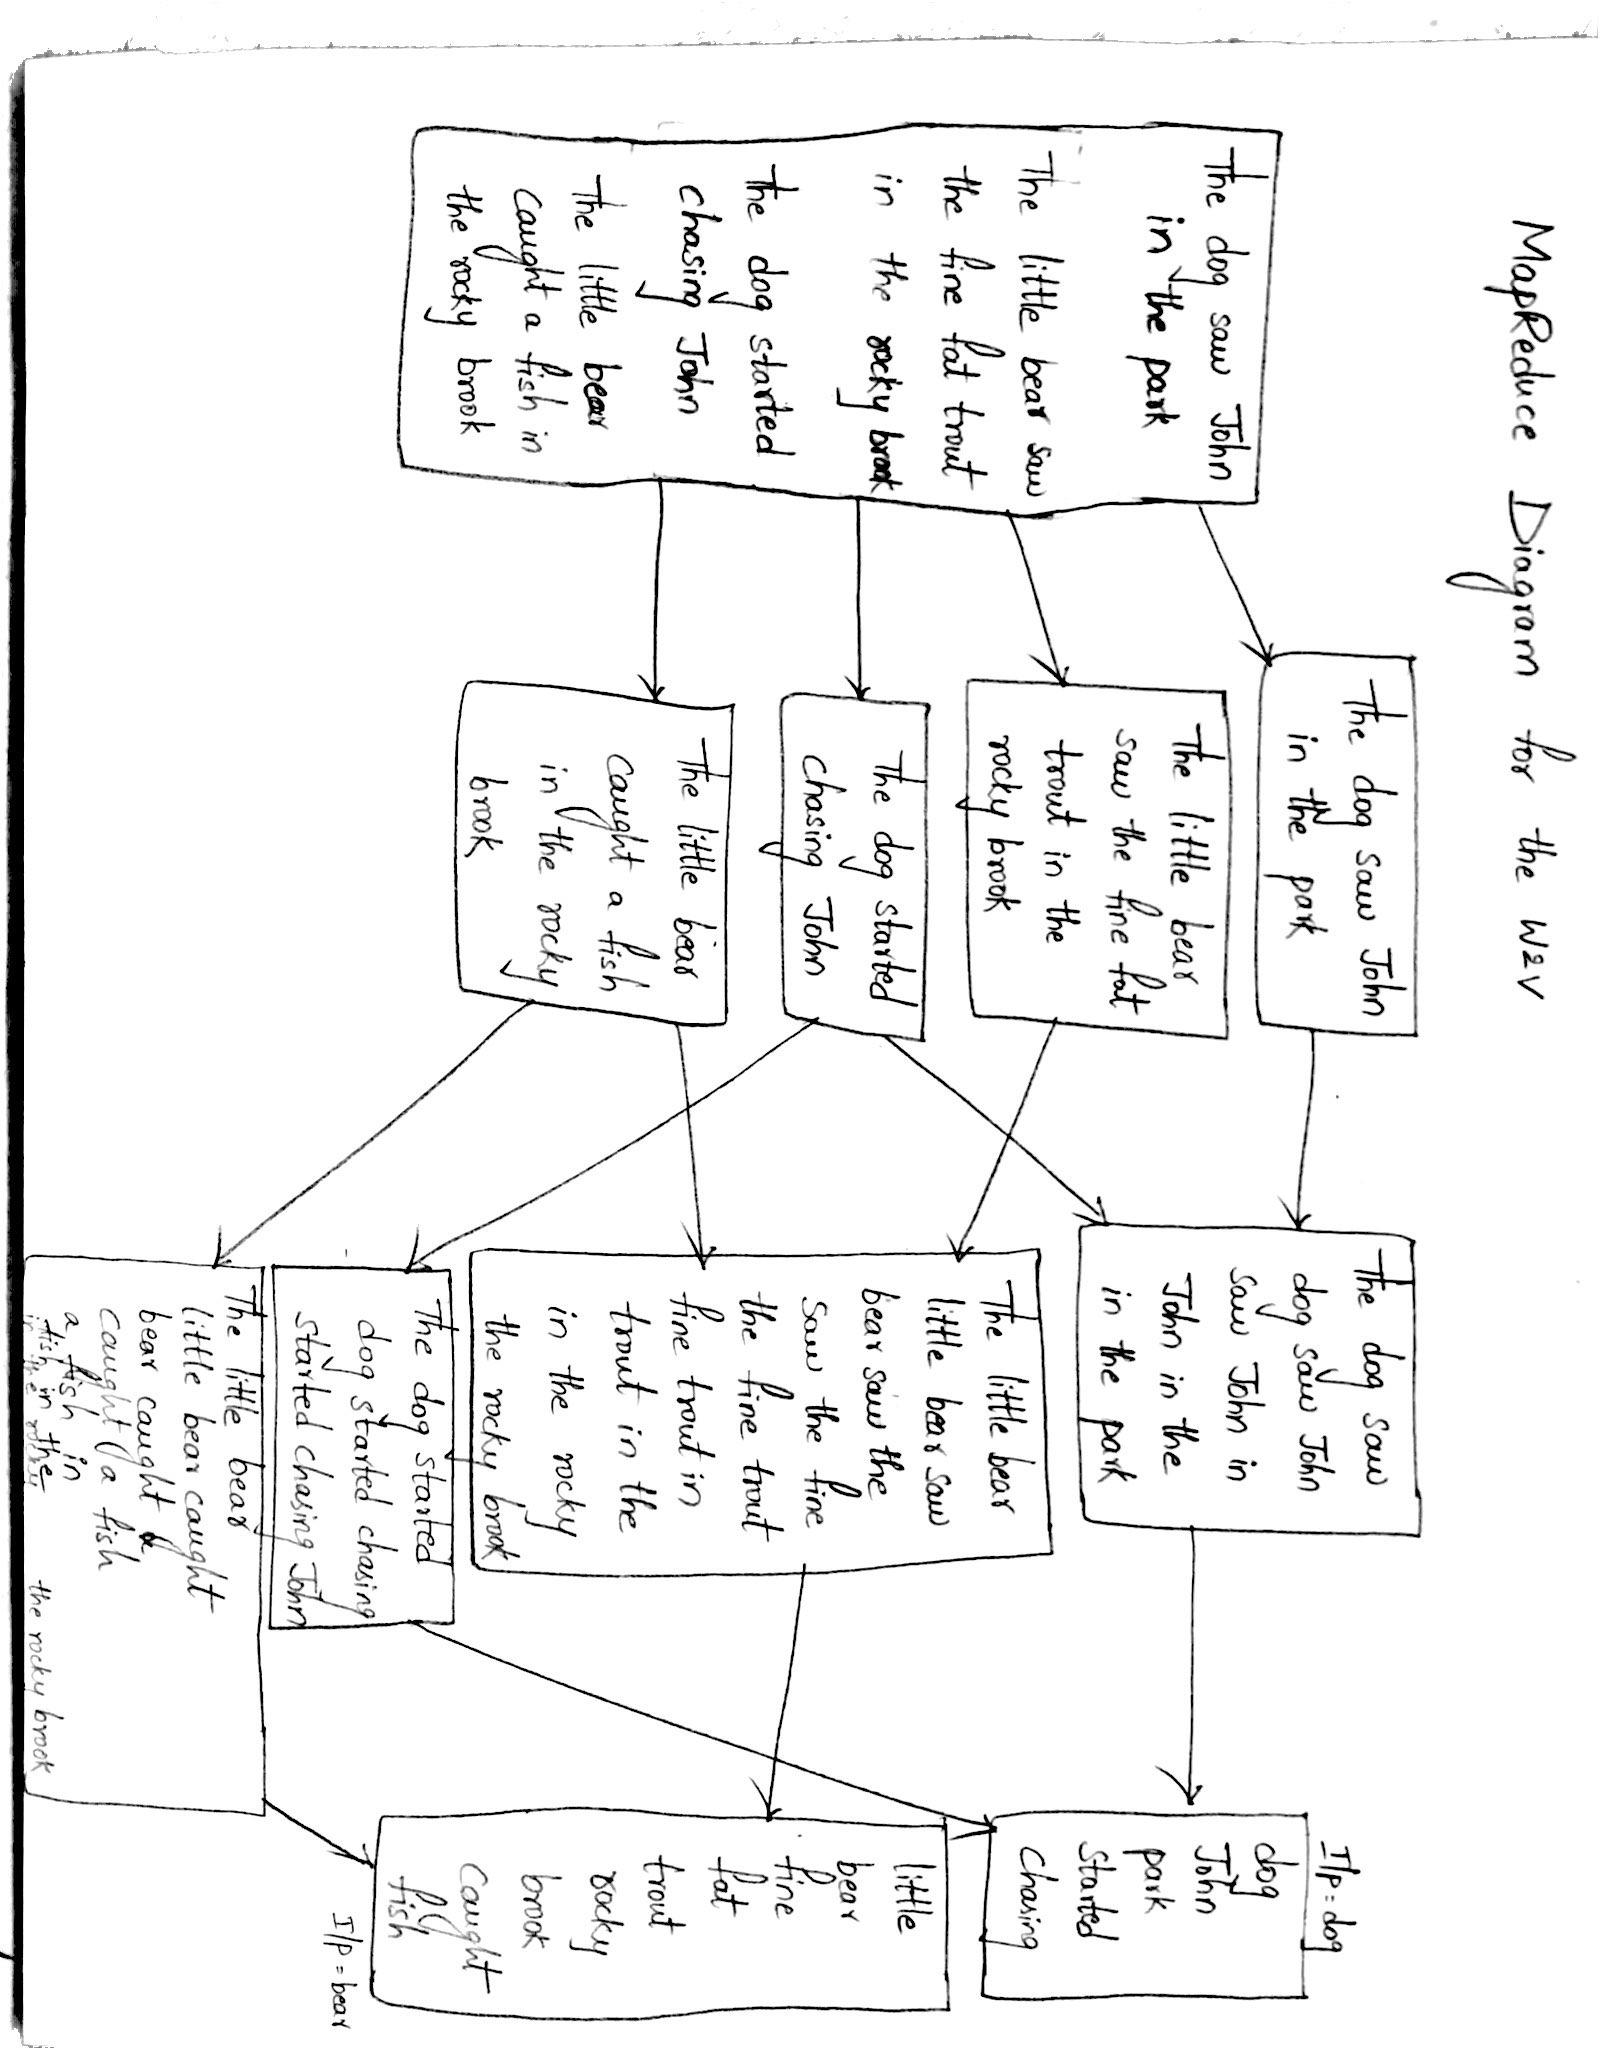 MapReduce Diagram for the W2V
The dog saw John
in the park
The little bear saw
the fine fat trout
in the rocky brook
The dog started
chasing John
The little bear
caught a fish in
the rocky brook
The dog saw John
in the park
The little bear
saw the fine fat
trout in the
rocky brook
The dog started
chasing John
The little bear
caught a fish
in the rocky
brook
The dog saw
dog saw John
saw John in
John in the
in the park
The little bear
little bear saw
bear saw the
saw the fine
the fine trout
fine trout in
trout in the
in the rocky
the rocky brook
The dog started
dog started chasing
started chasing John
The little bear
little bear caught
bear caught a
caught a fish
a fish in
fish in the
in the rocky
the rocky brook
I/p = dog
dog
John
park
started
chasing
little
bear
fine
fat
trout
rocky
brook
caught
fish
I/p = bear